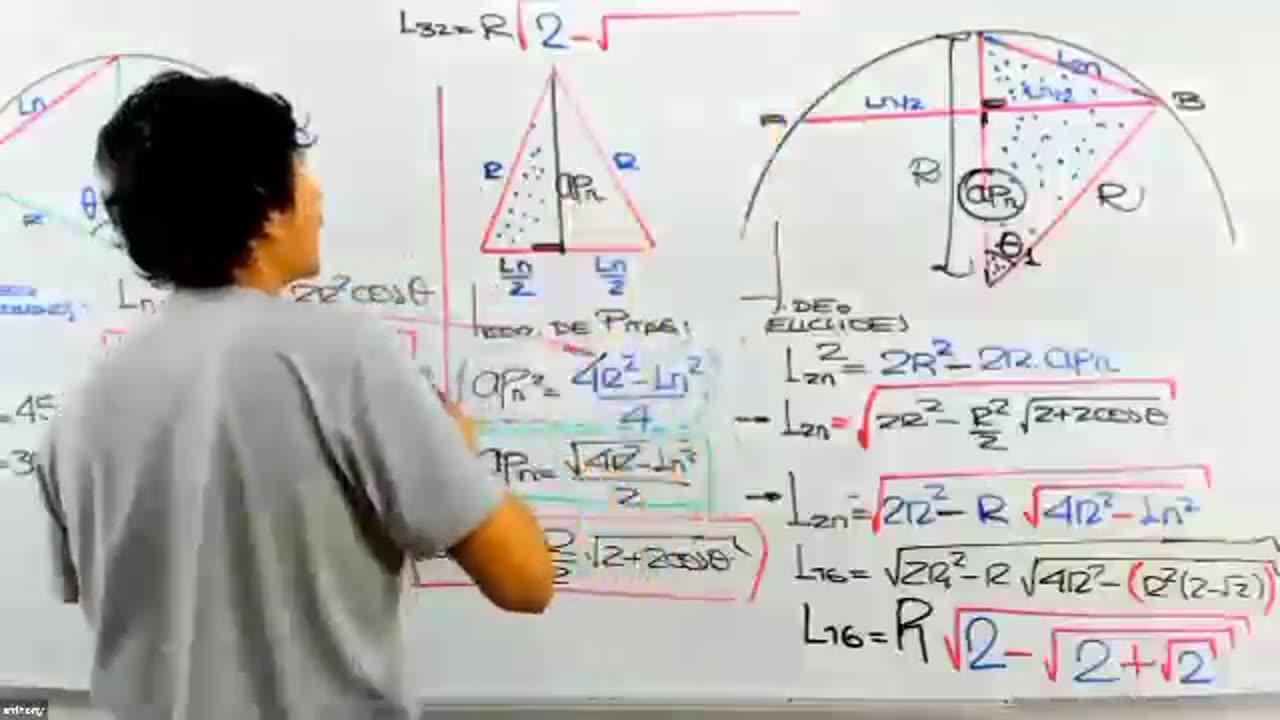 L32 = R√2 - √
Ln
R
θ
Ln
2R² cos θ
= 45
R
R
apn
Ln/2
Ln/2
TEO. DE PITAG:
apn² = 4R² - Ln² / 4
apn = √4R² - Ln² / 2
R/2 · √2+2cosθ
A
Ln/2
L2n
Ln/2
B
R
apn
R
θ
DE:
EUCLIDES
L2n² = 2R² - 2R.apn
→ L2n = √2R² - R²/2 √2+2cosθ
→ L2n = √2R² - R √4R² - Ln²
L16 = √2R² - R √4R² - (R²(2-√2))
L16 = R √2 - √2 + √2
anthony